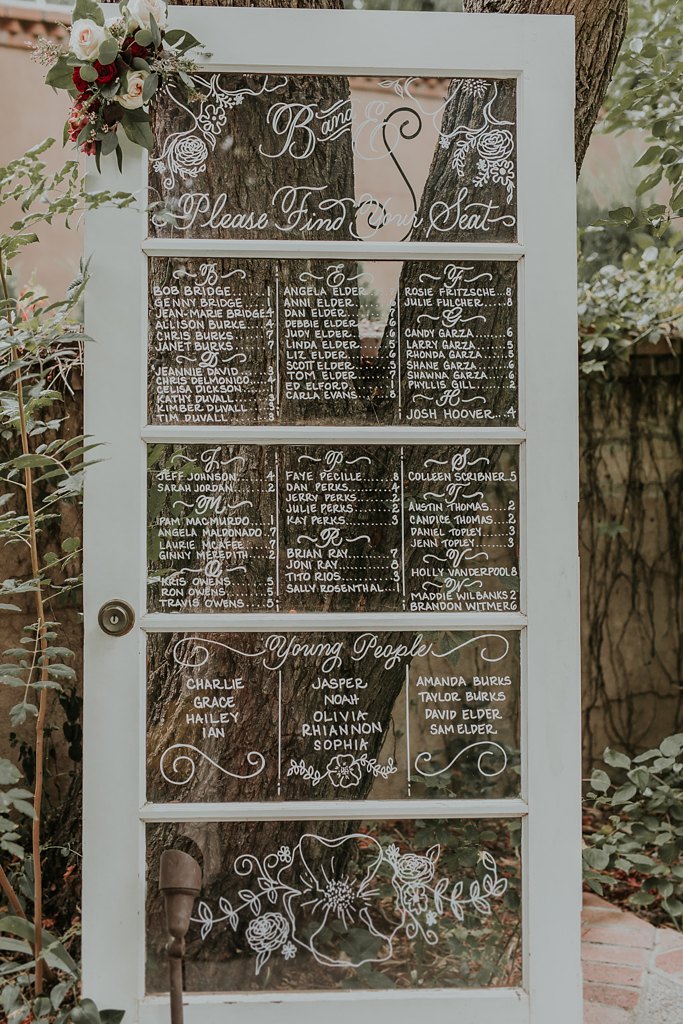 B and E
Please Find Your Seat
B
BOB BRIDGE......1
GENNY BRIDGE....1
JEAN-MARIE BRIDGE 4
ALLISON BURKE...4
CHRIS BURKS.....7
JANET BURKS.....7
D
JEANNIE DAVID
CHRIS DELMONICO..4
CELISA DICKSON
KATHY DUVALL
KIMBER DUVALL
TIM DUVALL
E
ANGELA ELDER
ANNI ELDER
DAN ELDER
DEBBIE ELDER
JUDY ELDER
LINDA ELDER
LIZ ELDER
SCOTT ELDER
TOM ELDER
DJ ELFORD
CARLA EVANS.....8
F
ROSIE FRITZSCHE...8
JULIE FULCHER...8
G
CANDY GARZA......6
LARRY GARZA......5
RHONDA GARZA.....5
SHANE GARZA......6
SHAWNA GARZA.....6
PHYLLIS GILL.....2
H
JOSH HOOVER...4
J
JEFF JOHNSON.....4
SARAH JORDAN.....2
M
IPAM MACMURDO....1
ANGELA MALDONADO.7
LAURIE MCAFEE....7
GINNY MEREDITH...2
O
KRIS OWENS.......5
RON OWENS........5
TRAVIS OWENS.....5
P
FAYE PECILLE.....8
DAN PERKS........4
JERRY PERKS......2
JULIE PERKS......2
KAY PERKS........3
R
BRIAN RAY........7
JONI RAY.........8
TITO RIOS........3
SALLY ROSENTHAL...1
S
COLLEEN SCRIBNER.5
T
AUSTIN THOMAS....2
CANDICE THOMAS...2
DANIEL TOPLEY....3
JENN TOPLEY......3
V
HOLLY VANDERPOOL 8
W
MADDIE WILBANKS 2
BRANDON WITMER 6
Young People
CHARLIE
GRACE
HAILEY
IAN
JASPER
NOAH
OLIVIA
RHIANNON
SOPHIA
AMANDA BURKS
TAYLOR BURKS
DAVID ELDER
SAM ELDER